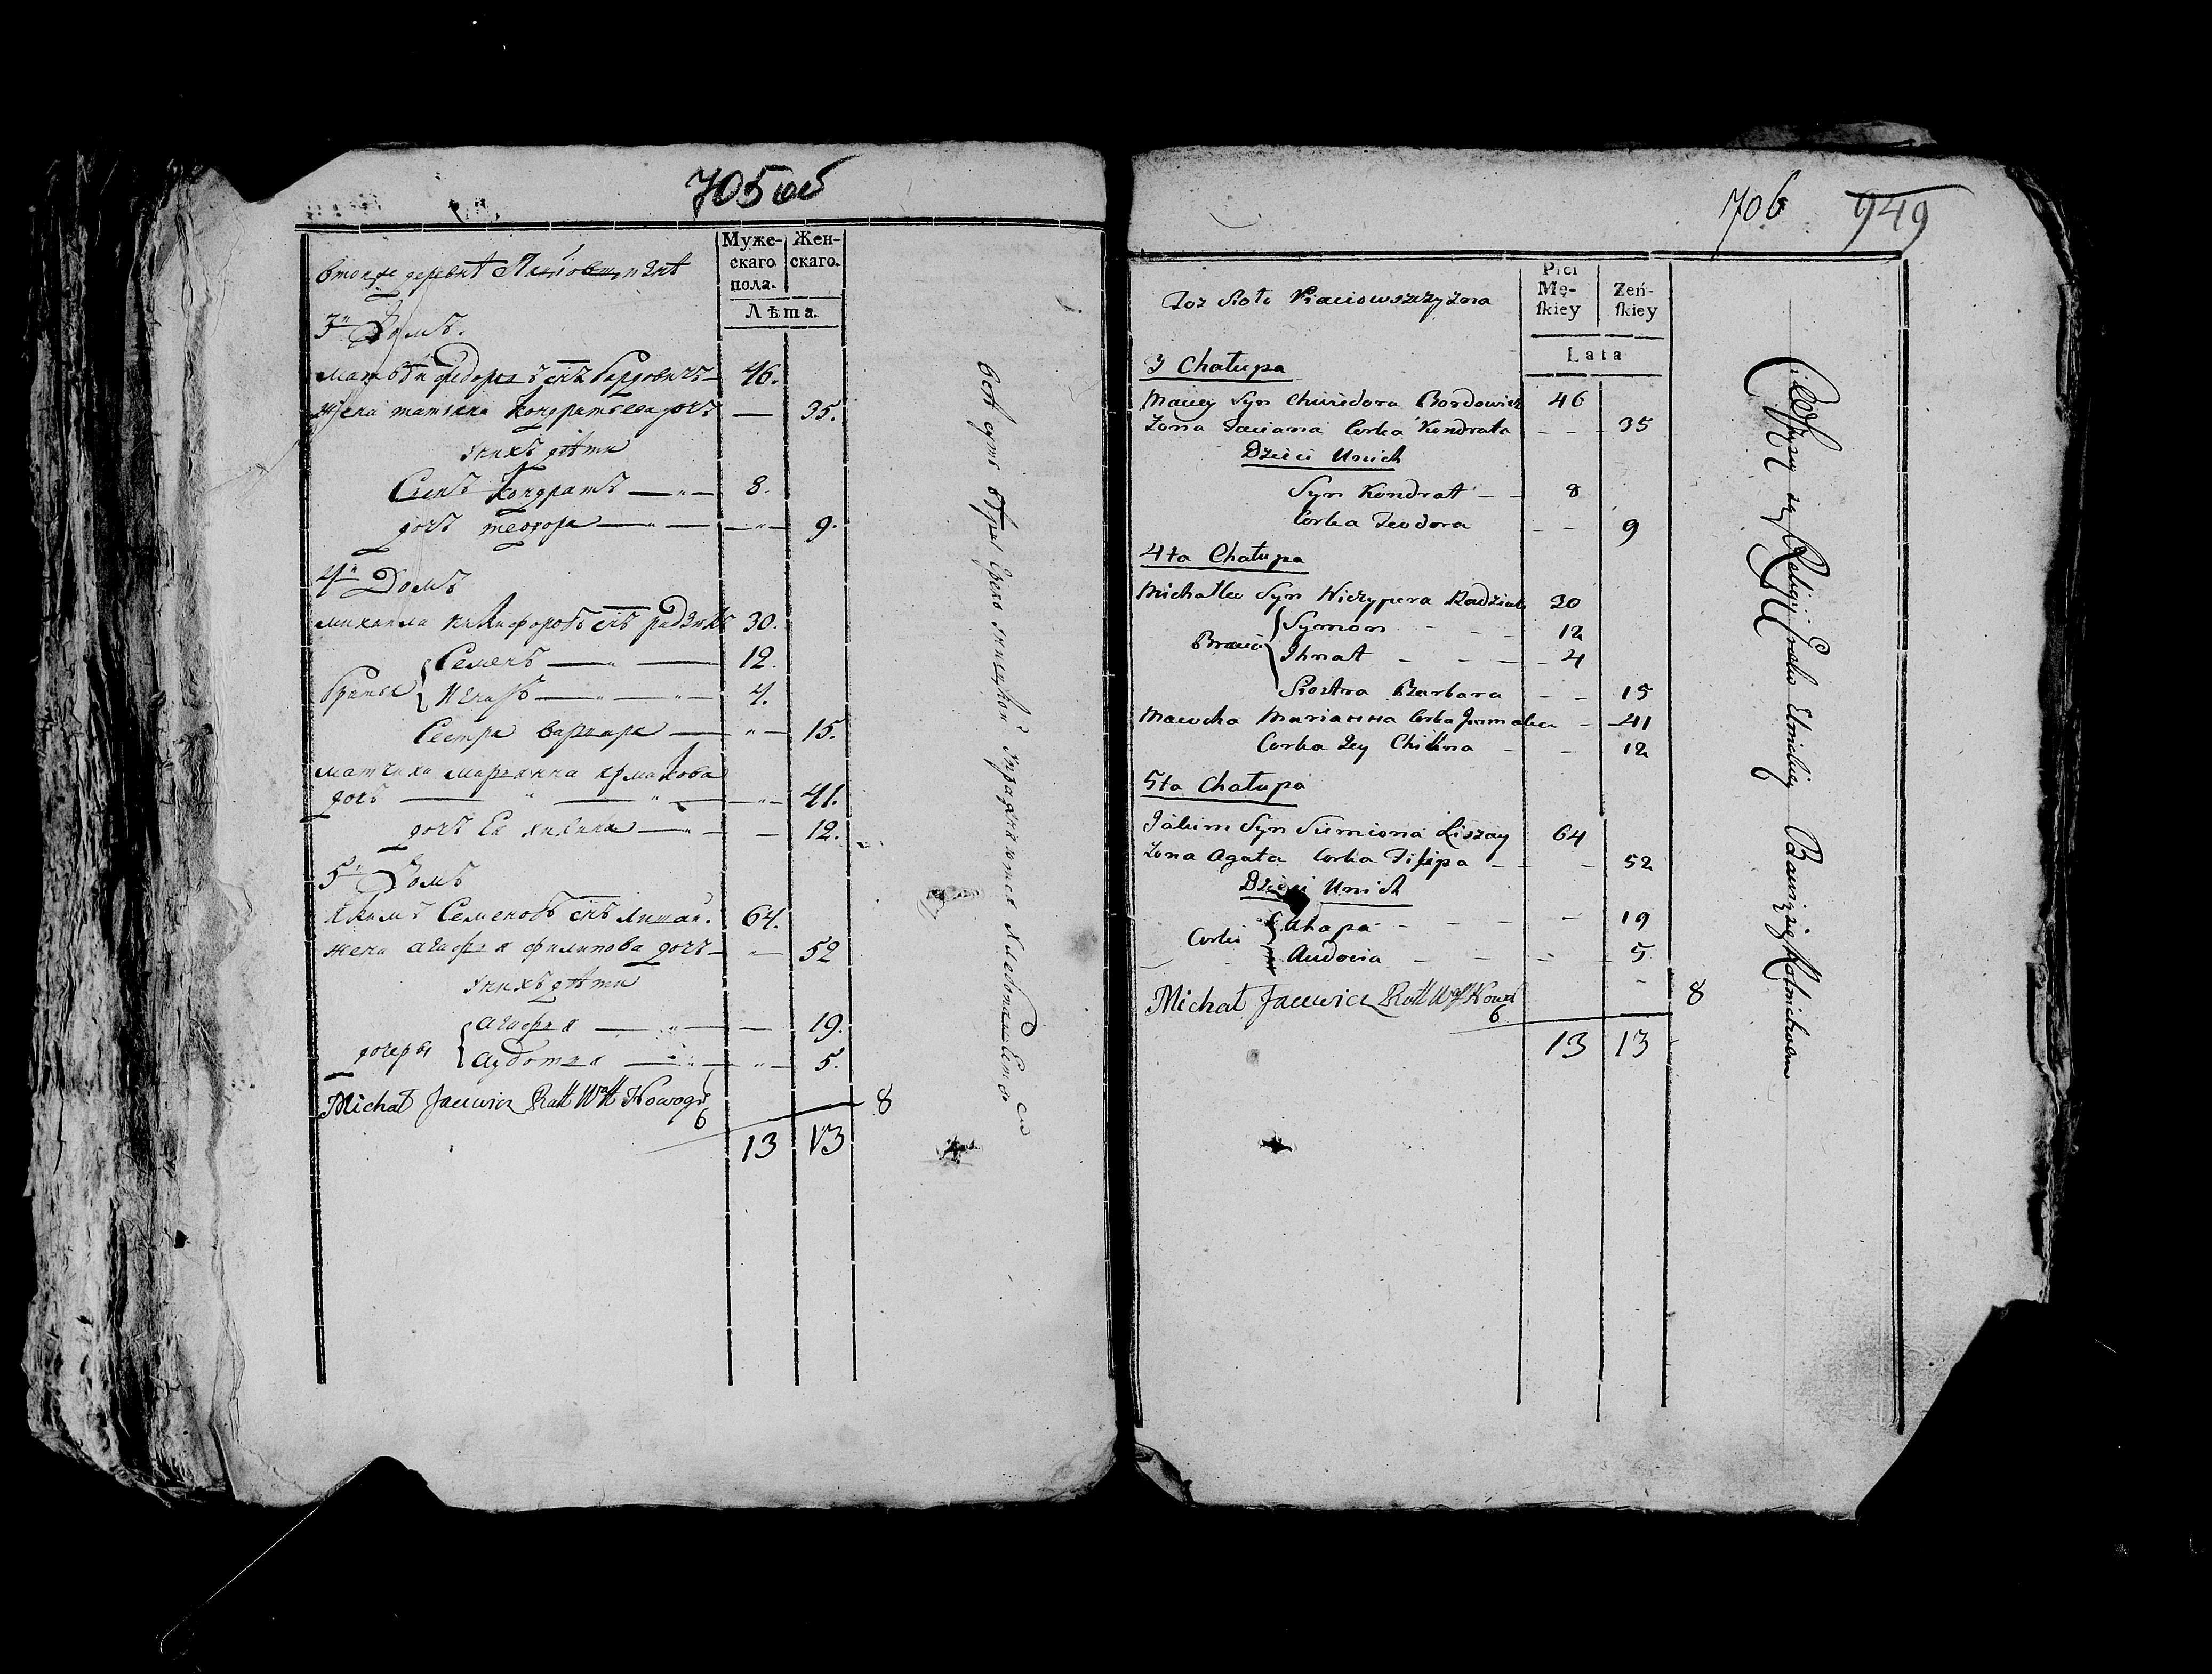 705 об
Муже-
скаго
пола.
Жен-
скаго.
Лѣта.
втойже деревнѣ
3й Домъ.
матвѣй федоровъ снъ бардовичъ 46.
жена татьяна кондратьева дочь — 35.
у нихъ дѣти
Сынъ кондратъ — 8.
дочь теодора — 9.
4й Домъ
михайла никифоровъ снъ 30.
братья
Семенъ — 12.
Игнатъ — 4.
Сестра варвара — 15.
матчиха марьянна ярмакова
дочь — 41.
дочь Ея хилина — 12.
5й Домъ
Якимъ Семеновъ снъ лишай. 64.
жена агафия филипова дочь — 52
у нихъ дѣти
дочеры
агафия — 19.
аудотия — 5.
Michał Jacewicz Rott Wtt Nowogr
6 8
13 13
всѣ суть вѣры греко униатской упражняются хлебопашествомъ
706 949
Toż Sioło Piaciowszczyzna
Płci
Mę-
ſkiey
Zeń-
ſkiey
Lata
3 Chałupa
Maciey Syn Chwiedora Bordowicz 46
Zona Taciana Corka Kondrata - - - 35
Dzieci Unich
Syn Kondrat - - 8
Corka Teodora - - 9
4ta Chałupa
Michałko Syn Niczypera Radziuk 30
Bracia
Symon - - - 12
Ihnat - - - 4
Siostra Barbara - - 15
Macocha Marianna Corka Jarmaka - 41
Corka Jey Chilina - - 12
5ta Chałupa
Jakim Syn Siemiona Liszay 64
Zona Agata Corka Filipa - - - 52
Dzieci Unich
Corki
Ahapa - - - - 19
Audocia - - - - 5
Michał Jacewicz Rott Wtt Nowogr
6 8
13 13
Ci Wszyscy są Religij Greko Unickiey Bawią się Rolnictwem